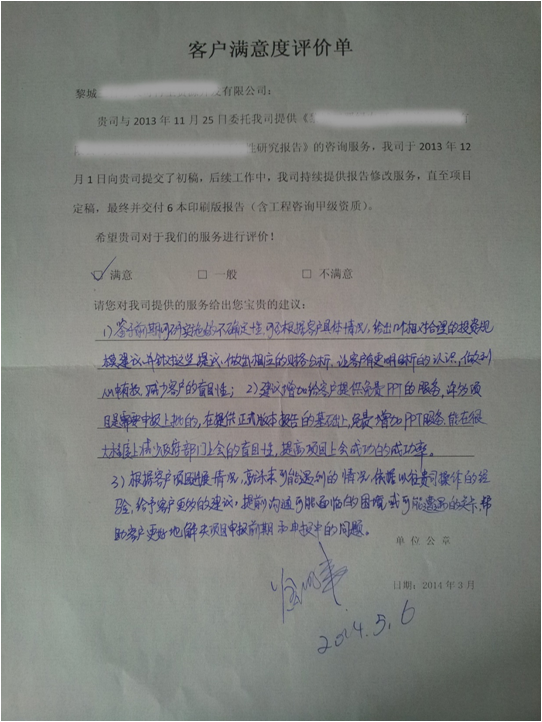 客户满意度评价单
黎城 发有限公司：
贵司与 2013 年 11 月 25 日委托我司提供《
性研究报告》的咨询服务，我司于 2013 年 12
月 1 日向贵司提交了初稿，后续工作中，我司持续提供报告修改服务，直至项目
定稿，最终并交付 6 本印刷版报告（含工程咨询甲级资质）。
希望贵司对于我们的服务进行评价！
☑ 满意 □ 一般 □ 不满意
请您对我司提供的服务给出您宝贵的建议：
1）鉴于前期可研实施的不确定性，可否根据客户具体情况，给出几个相对合理的投资规
模建议，并针对这些提议，做出相应的财务分析，让客户有更明晰的认识，做到
从 ，减少客户的盲目性；2）建议增加给客户提供免费PPT的服务，部分项
目是需要申报上批的，在提供正式版本报告的基础上，免费增加PPT服务，能在很
大程度上减少政府部门上会的盲目性，提高项目上会成功的成功率。
3）根据客户项目进展情况， 未来可能遇到的情况，依据以往贵司操作的经
验，给予客户更多的建议，提前沟通可能面临的困境或可能遭遇的关卡，帮
助客户更好地解决项目申报前期和申报中的问题。
单位公章
日期：2014 年 3 月
2014.5.6